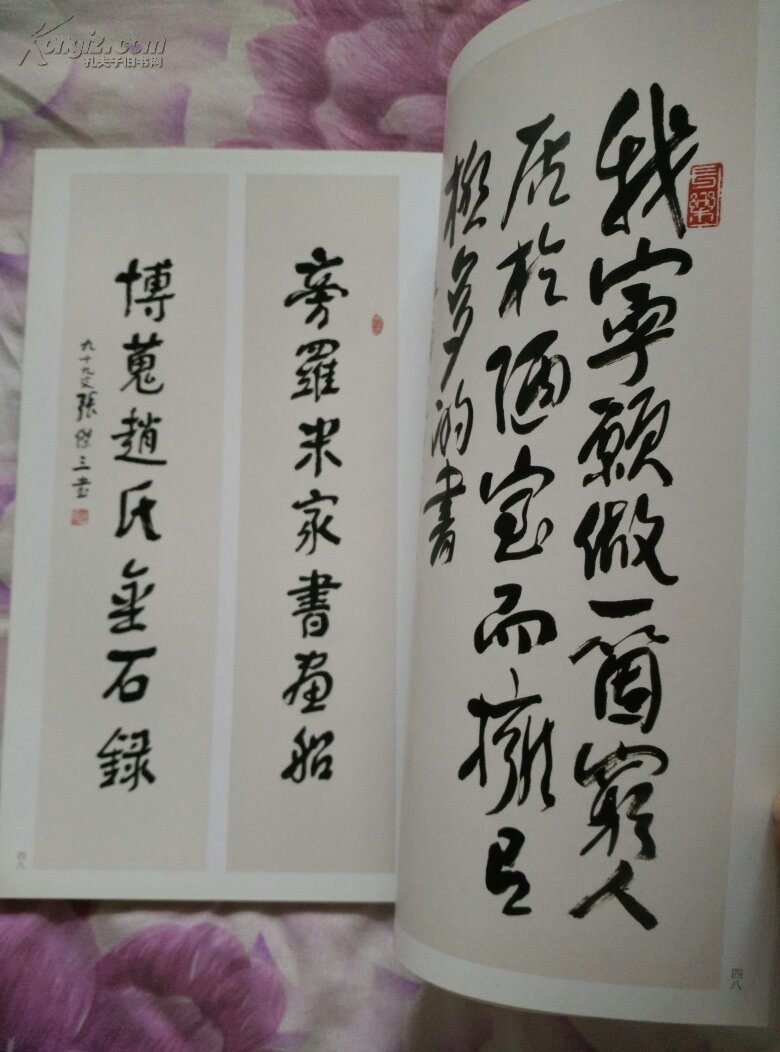 我寧願做一箇窮人
居於陋室而擁有
極多的書
四八
旁羅米家書畫船
博蒐趙氏金石錄
九十九叟張傑三書
四九
Kongfz.com
孔夫子旧书网